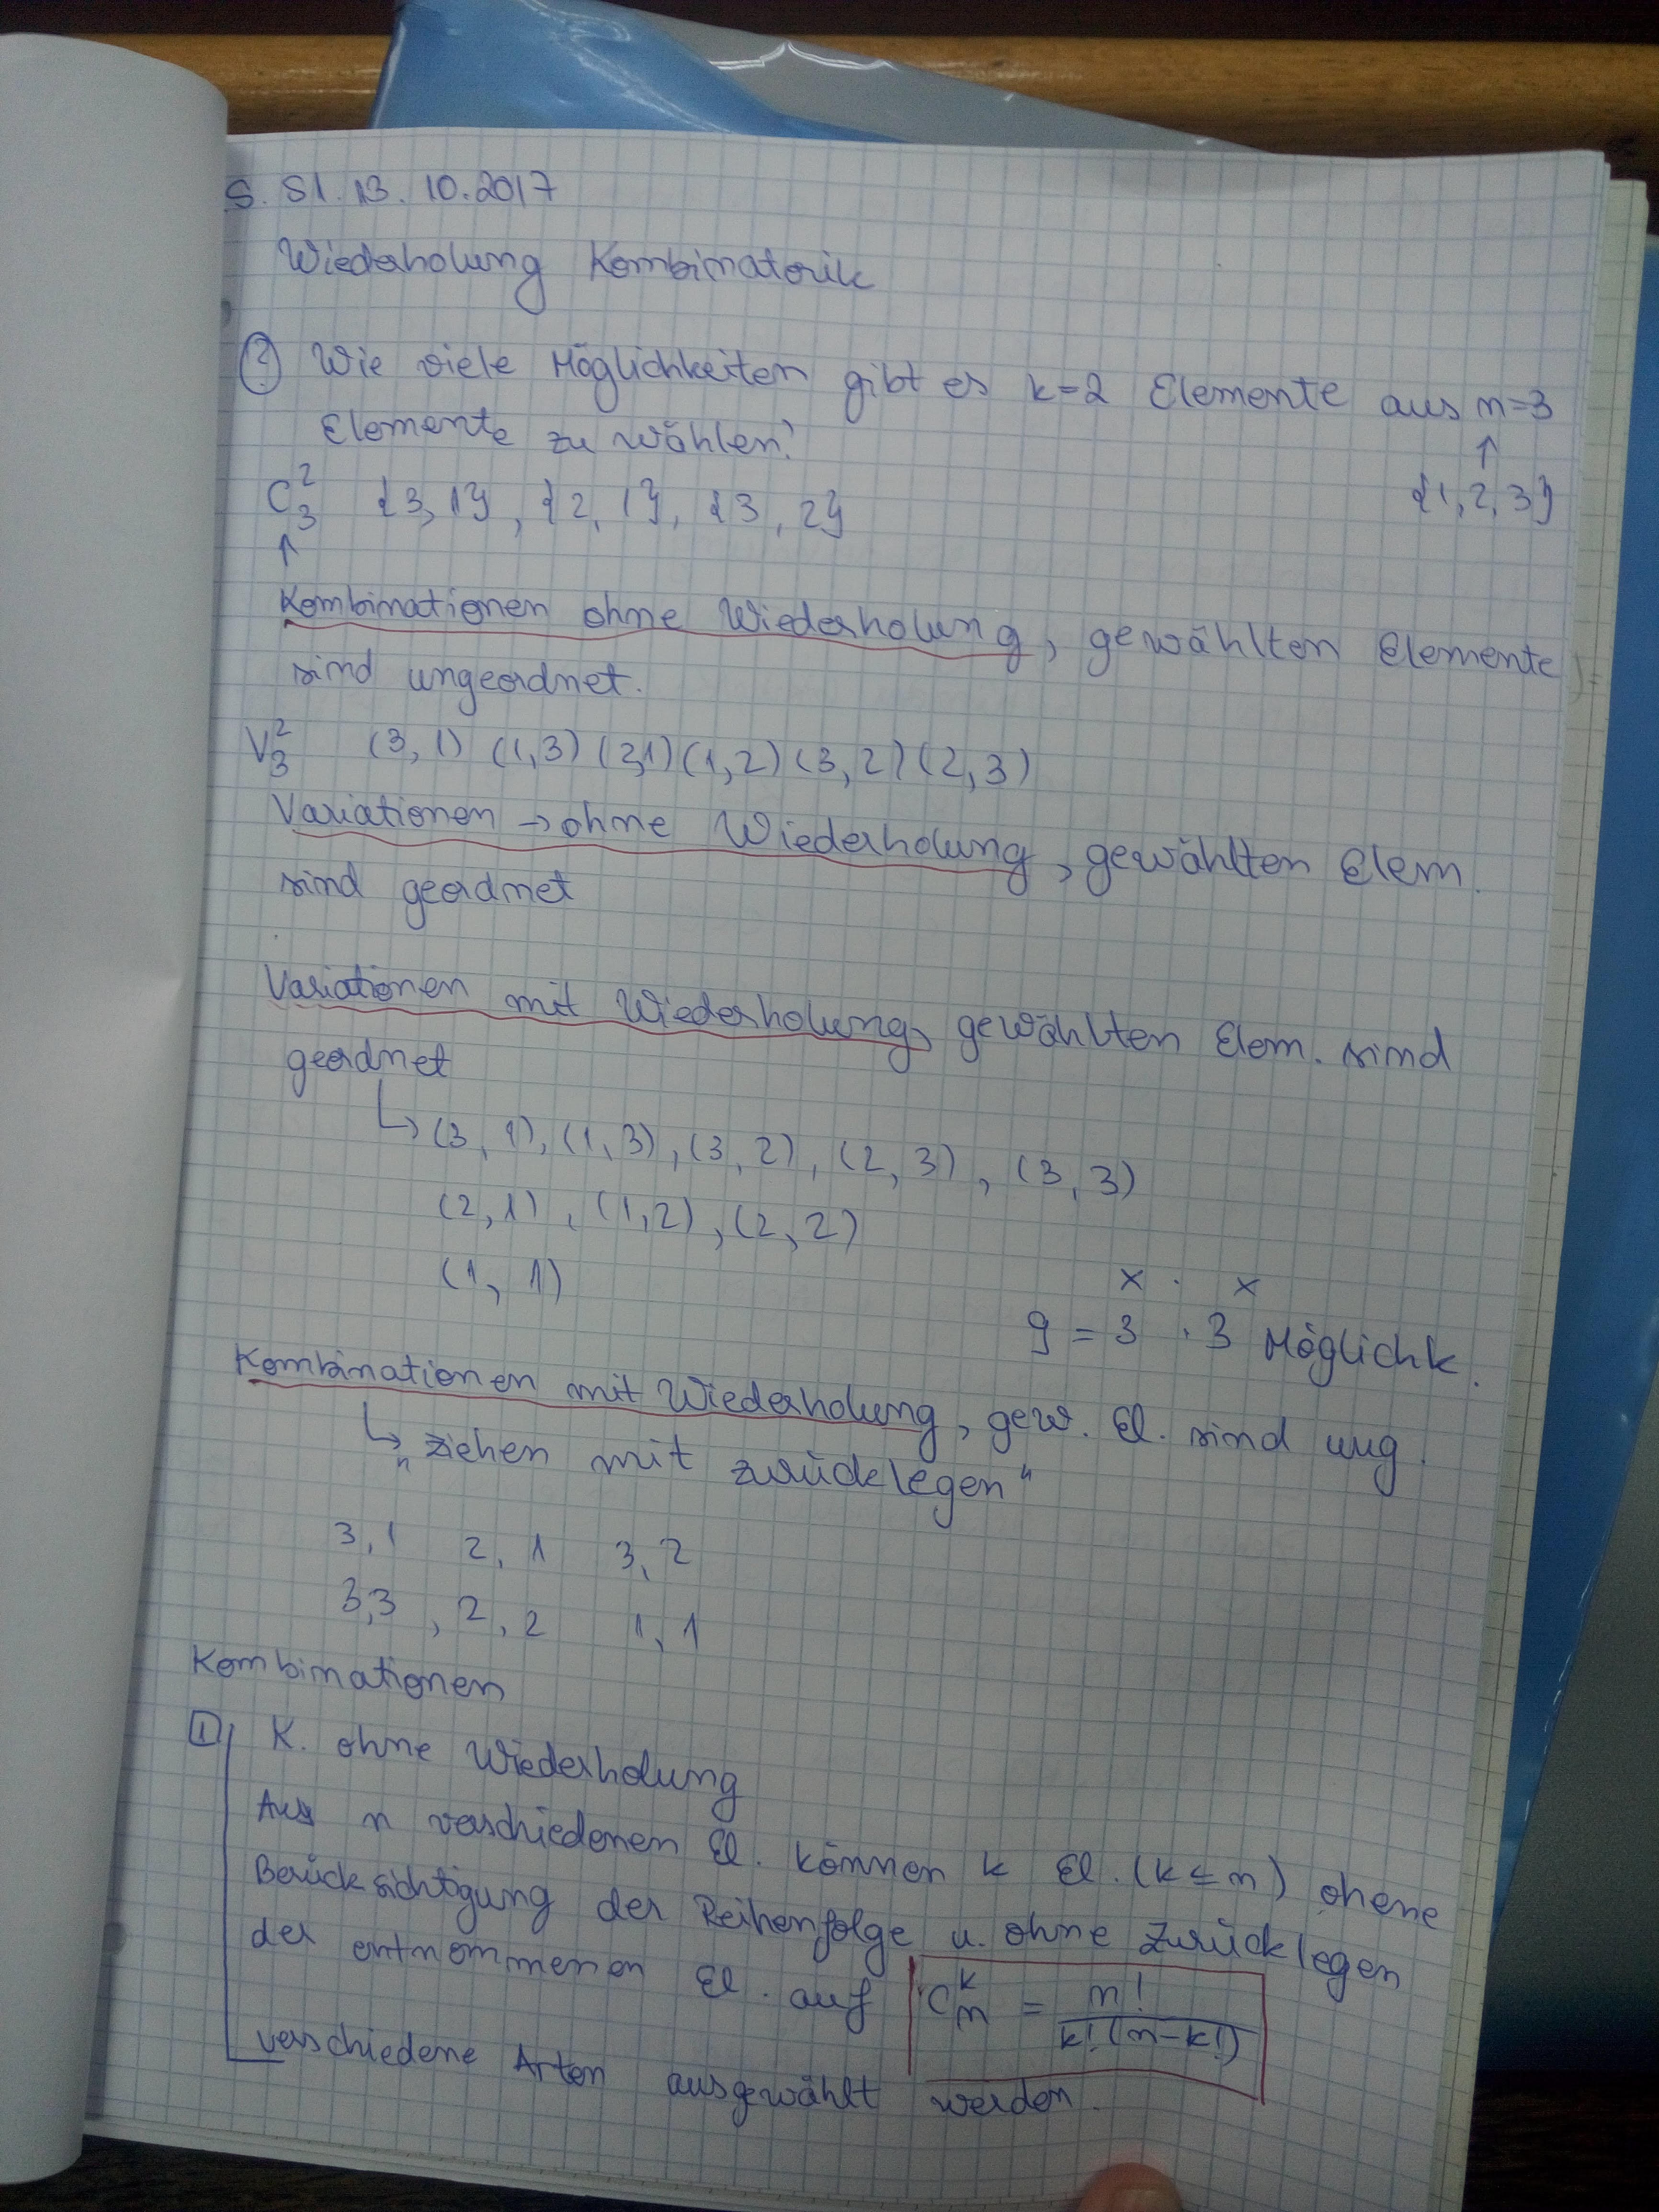 S. S1. 13. 10. 2017
Wiederholung Kombinatorik
? Wie viele Möglichkeiten gibt es k=2 Elemente aus n=3
Elemente zu wählen?
↑
C₃² {3, 1}, {2, 1}, {3, 2} {1, 2, 3}
↑
Kombinationen ohne Wiederholung, gewählten Elemente
sind ungeordnet.
V₃² (3, 1) (1,3) (2,1) (1,2) (3,2) (2,3)
Variationen → ohne Wiederholung, gewählten Elem.
sind geordnet
Variationen mit Wiederholung, gewählten Elem. sind
geordnet
↳ (3, 1), (1, 3), (3, 2), (2, 3), (3, 3)
(2, 1), (1,2), (2, 2)
(1, 1)
x · x
9 = 3 · 3 Möglichk.
Kombinationen mit Wiederholung, gew. El. sind ung.
↳ „ziehen mit zurücklegen“
3, 1 2, 1 3, 2
3,3, 2, 2 1, 1
Kombinationen
1 K. ohne Wiederholung
Aus n verschiedenen El. können k El. (k ≤ n) ohene
Berücksichtigung der Reihenfolge u. ohne Zurücklegen
der entnommenen El. auf Cₙᵏ = n! / k! (n-k!)
verschiedene Arten ausgewählt werden.